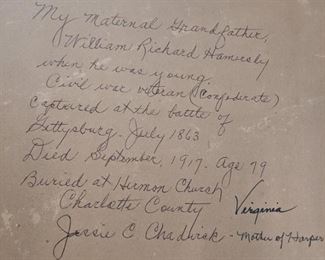 My Maternal Grandfather,
William Richard Hamersly
when he was young.
Civil war veteran (Confederate)
captured at the battle of
Gettysburg. July 1863
Died September, 1917. Age 79
Buried at Hermon Church
Charlotte County Virginia
Jessie C Chadwick - Mother of Harper